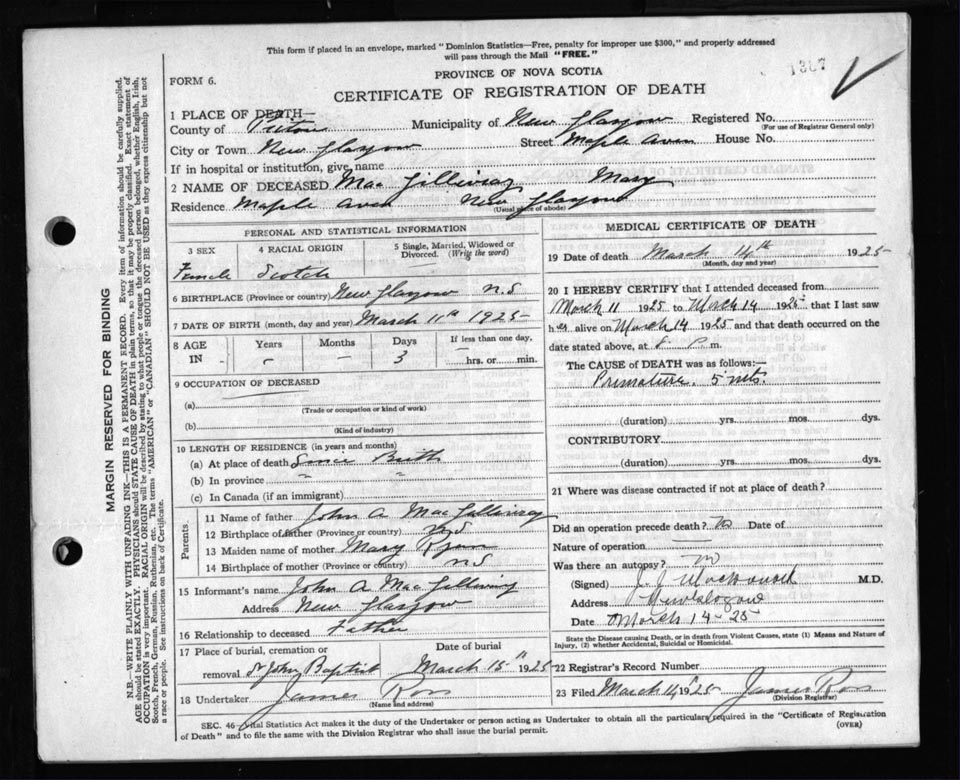 This form if placed in an envelope, marked "Dominion Statistics—Free, penalty for improper use $300," and properly addressed
will pass through the Mail "FREE."
1307
FORM 6.
PROVINCE OF NOVA SCOTIA
CERTIFICATE OF REGISTRATION OF DEATH
MARGIN RESERVED FOR BINDING
N.B.—WRITE PLAINLY WITH UNFADING INK—THIS IS A PERMANENT RECORD. Every item of information should be carefully supplied.
AGE should be stated EXACTLY. PHYSICIANS should STATE CAUSE OF DEATH in plain terms, so that it may be properly classified. Exact statement of
OCCUPATION is very important. RACIAL ORIGIN will be described by stating to what people or tongue the deceased person belonged, whether English, Irish,
Scotch, French, German, Russian, Ruthenian, etc. The terms "AMERICAN" or "CANADIAN" SHOULD NOT BE USED as they express citizenship but not
a race or people. See instructions on back of Certificate.
1 PLACE OF DEATH—
County of Pictou Municipality of New Glasgow Registered No.
(For use of Registrar General only)
City or Town New Glasgow Street Maple Aven House No.
If in hospital or institution, give name
2 NAME OF DECEASED Mac Gillivray Mary
Residence Maple Aven New Glasgow
(Usual place of abode)
PERSONAL AND STATISTICAL INFORMATION
3 SEX 4 RACIAL ORIGIN 5 Single, Married, Widowed or Divorced. (Write the word)
Female Scotch
6 BIRTHPLACE (Province or country) New Glasgow N.S
7 DATE OF BIRTH (month, day and year) March 11th 1925
8 AGE IN Years Months Days If less than one day,
— — 3 hrs. or min.
9 OCCUPATION OF DECEASED
(a)
(Trade or occupation or kind of work)
(b)
(Kind of industry)
10 LENGTH OF RESIDENCE (in years and months)
(a) At place of death Since Birth
(b) In province " "
(c) In Canada (if an immigrant)
Parents
11 Name of father John A. Mac Gillivray
12 Birthplace of father (Province or country) N.S
13 Maiden name of mother Mary
14 Birthplace of mother (Province or country) N.S
15 Informant's name John A MacGillivray
Address New Glasgow
16 Relationship to deceased Father
17 Place of burial, cremation or removal St John Baptist Date of burial March 15th 1925
18 Undertaker James Ross
(Name and address)
MEDICAL CERTIFICATE OF DEATH
19 Date of death March 14th 1925
(Month, day and year)
20 I HEREBY CERTIFY that I attended deceased from
March 11 1925 to March 14 1925 that I last saw
her alive on March 14 1925 and that death occurred on the
date stated above, at P. m.
The CAUSE OF DEATH was as follows:—
Premature. 5 mts.
(duration) yrs. mos. dys.
CONTRIBUTORY
(duration) yrs. mos. dys.
21 Where was disease contracted if not at place of death?
Did an operation precede death? no Date of
Nature of operation —
Was there an autopsy? no
(Signed) M.D.
Address New Glasgow
Date March 14-25
State the Disease causing Death, or in death from Violent Causes, state (1) Means and Nature of
Injury, (2) whether Accidental, Suicidal or Homicidal.
22 Registrar's Record Number
23 Filed March 1925 James Ross
(Division Registrar)
SEC. 46—Vital Statistics Act makes it the duty of the Undertaker or person acting as Undertaker to obtain all the particulars required in the "Certificate of Registration
of Death" and to file the same with the Division Registrar who shall issue the burial permit.
(OVER)